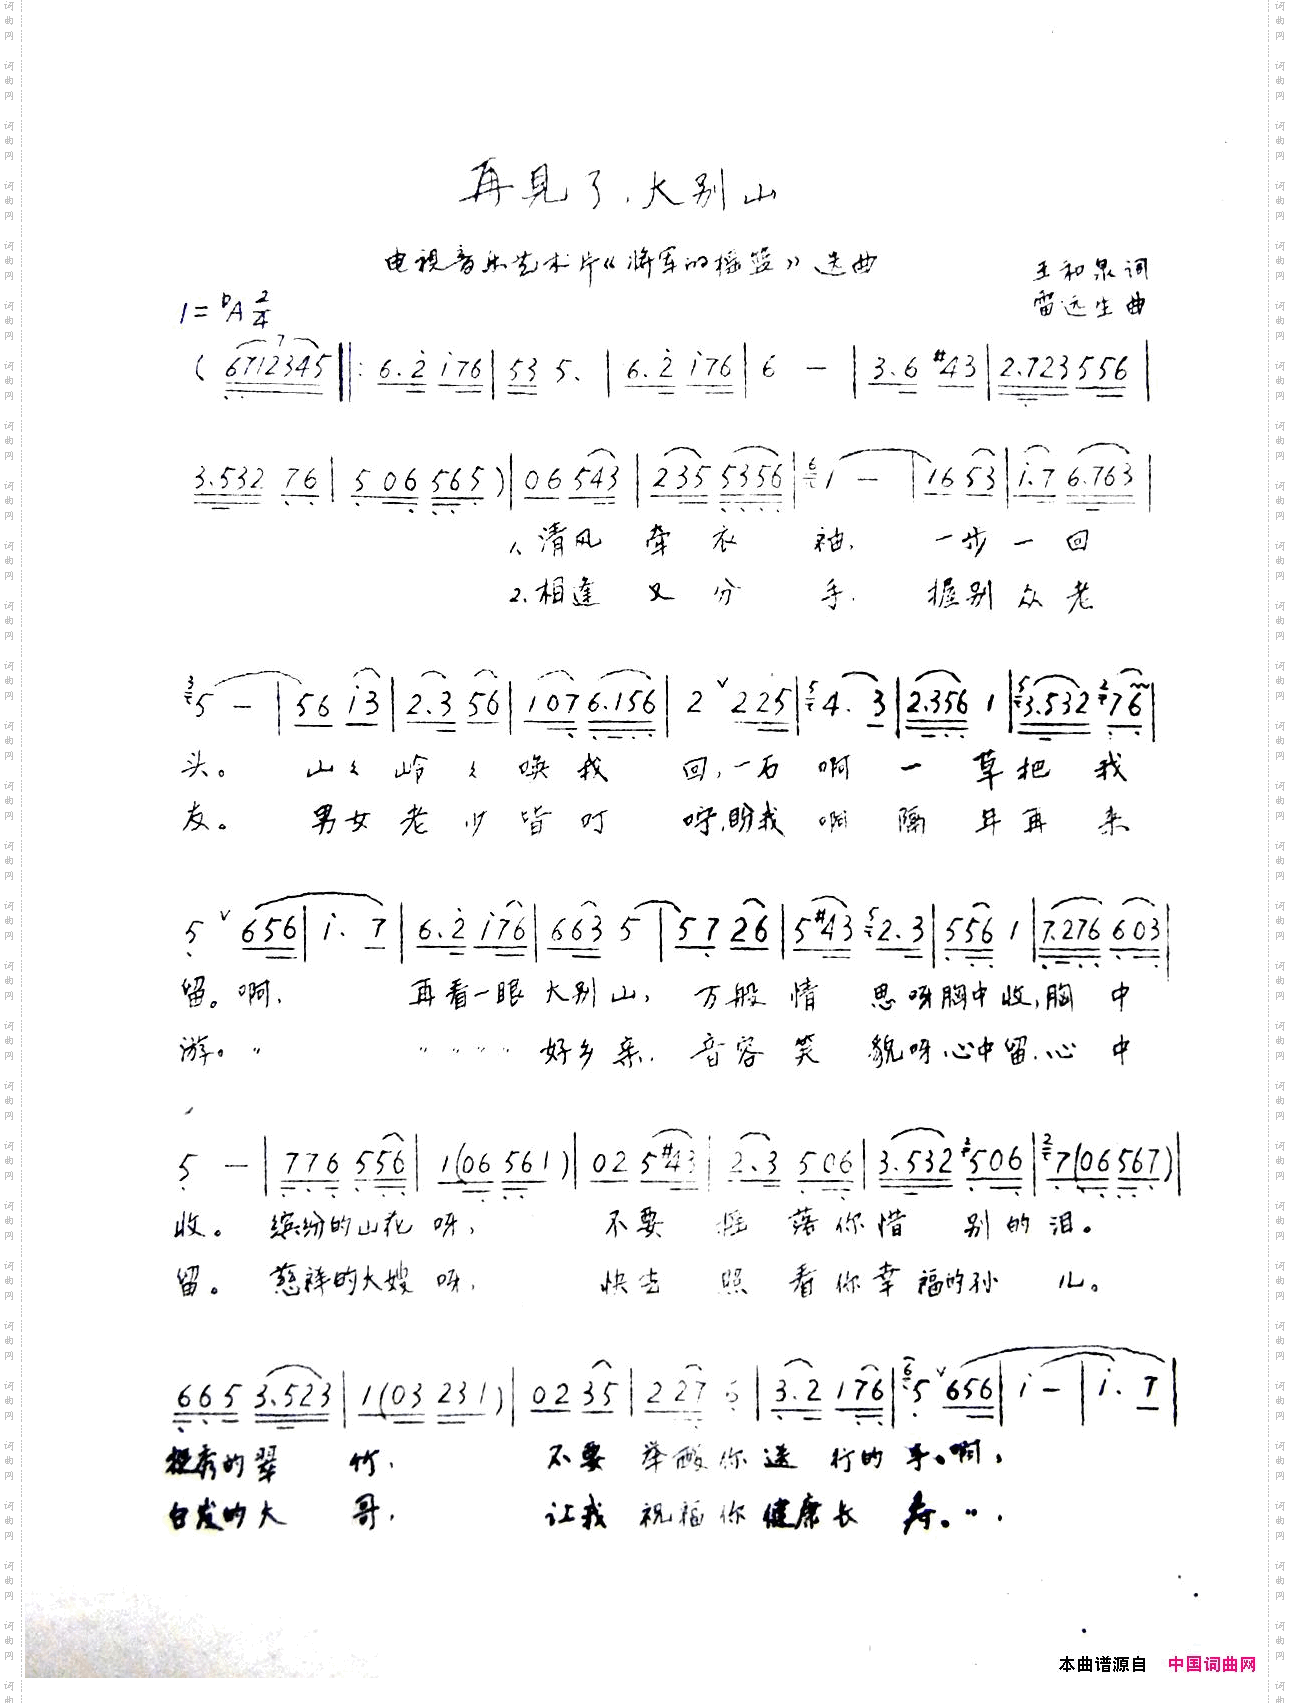 再見了、大别山
电视音乐艺术片《将军的摇篮》选曲
王和泉词
1=♭A 2/4
雷远生曲
( 6712345 ‖: 6.2 176 | 53 5. | 6.2 176 | 6 — | 3.6 #43 | 2.723 556 |
3.532 76 | 506 565 ) | 06 543 | 235 5356 | 6 1 — | 16 53 | 1.7 6.763 |
1.清风 牵 衣 袖, 一步一回
2.相逢 又 分 手. 握别众老
3 5 — | 56 13 | 2.3 56 | 107 6.156 | 2 ∨ 225 | 5 4. 3 | 2.356 1 | 5 3.532 2 76 |
头。 山々岭々唤我 回,一石啊 一 草把 我
友。 男女老少皆叮 咛,盼我啊 隔 年再 来
5 ∨ 656 | 1. 7 | 6.2 176 | 663 5 | 57 26 | 5#43 5 2.3 | 556 1 | 7.276 603 |
留。啊, 再看一眼大别山, 万般情 思呀胸中收,胸 中
游。〃 〃〃〃〃好乡亲. 音容笑 貌呀,心中留.心 中
5 — | 776 556 | 1(06 561) | 02 5#43 | 2.3 506 | 3.532 2 506 | 2 7(06 567) |
收。 缤纷的山花呀, 不要 摇 落你惜 别的泪。
留。 慈祥的大嫂呀, 快去 照 看你幸 福的孙 儿。
665 3.523 | 1(03 231) | 02 35 | 227 6 | 3.2 176 | 6 5 ∨ 656 | 1 — | 1. 7 |
挺秀的翠 竹, 不要 举酸你送 行的手。啊,
白发的大 哥, 让我 祝福你健康长 寿。〃.
本曲谱源自 中国词曲网